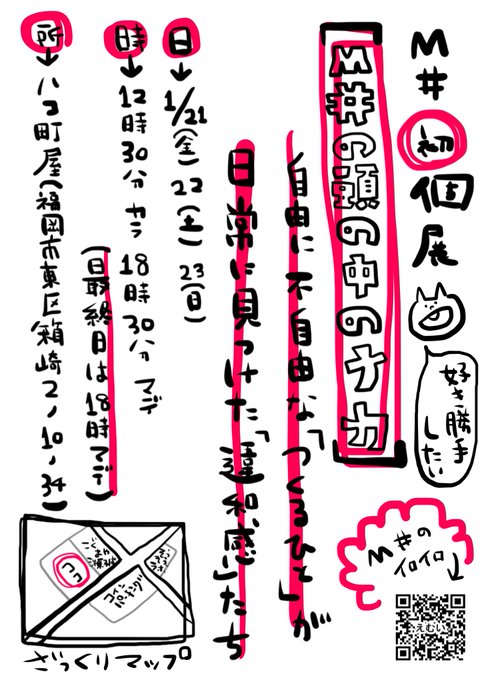 M井初個展
好き勝手
したい
M井の頭の中のナカ
自由に不自由な「つくるひと」が
日常に見つけた「違和感」たち
日→1/21(金)22(土)23(日)
時→12時30分カラ18時30分マデ
(最終日は18時マデ)
所→ハコ町屋(福岡市東区箱崎2ノ10ノ34)
ココ
コイン
パーキング
ざっくりマップ
M井の
イロイロ
えむい